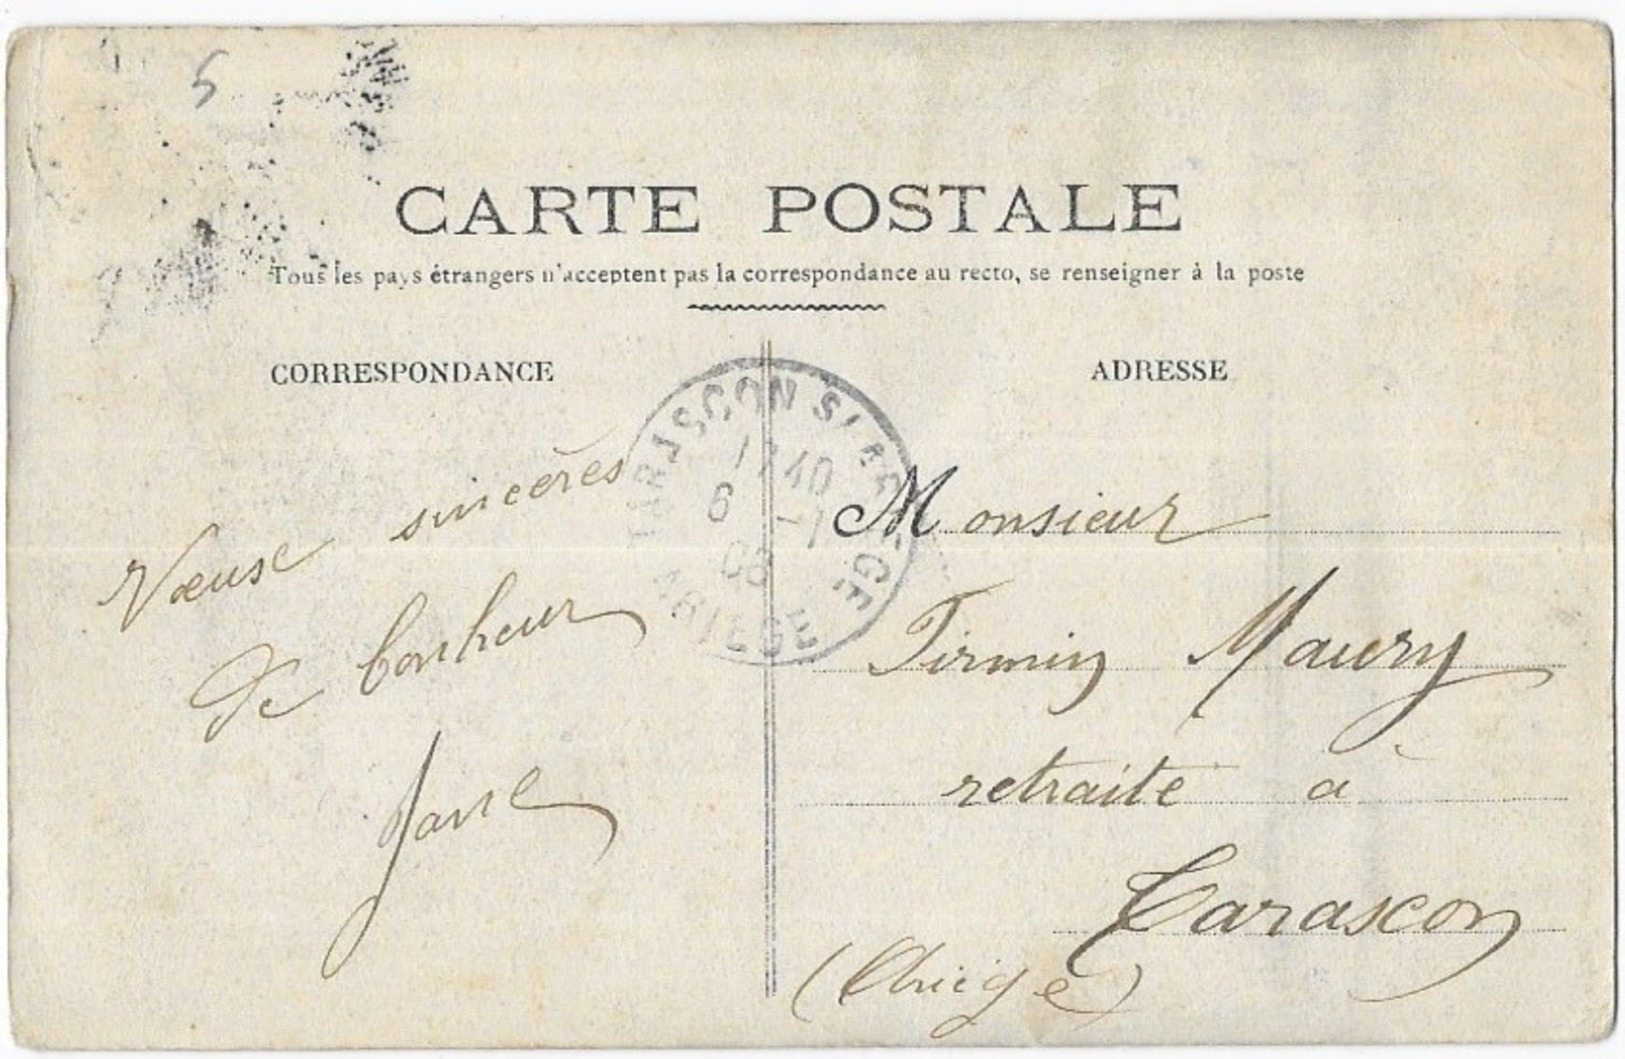 5
CARTE POSTALE
Tous les pays étrangers n'acceptent pas la correspondance au recto, se renseigner à la poste
CORRESPONDANCE
ADRESSE
TARASCON S/ ARIEGE
17 40
6 -1
08
ARIEGE
Vœuse sincères
de bonheur
Monsieur
Firmin Maury
retraité à
Tarascon
(Ariège)